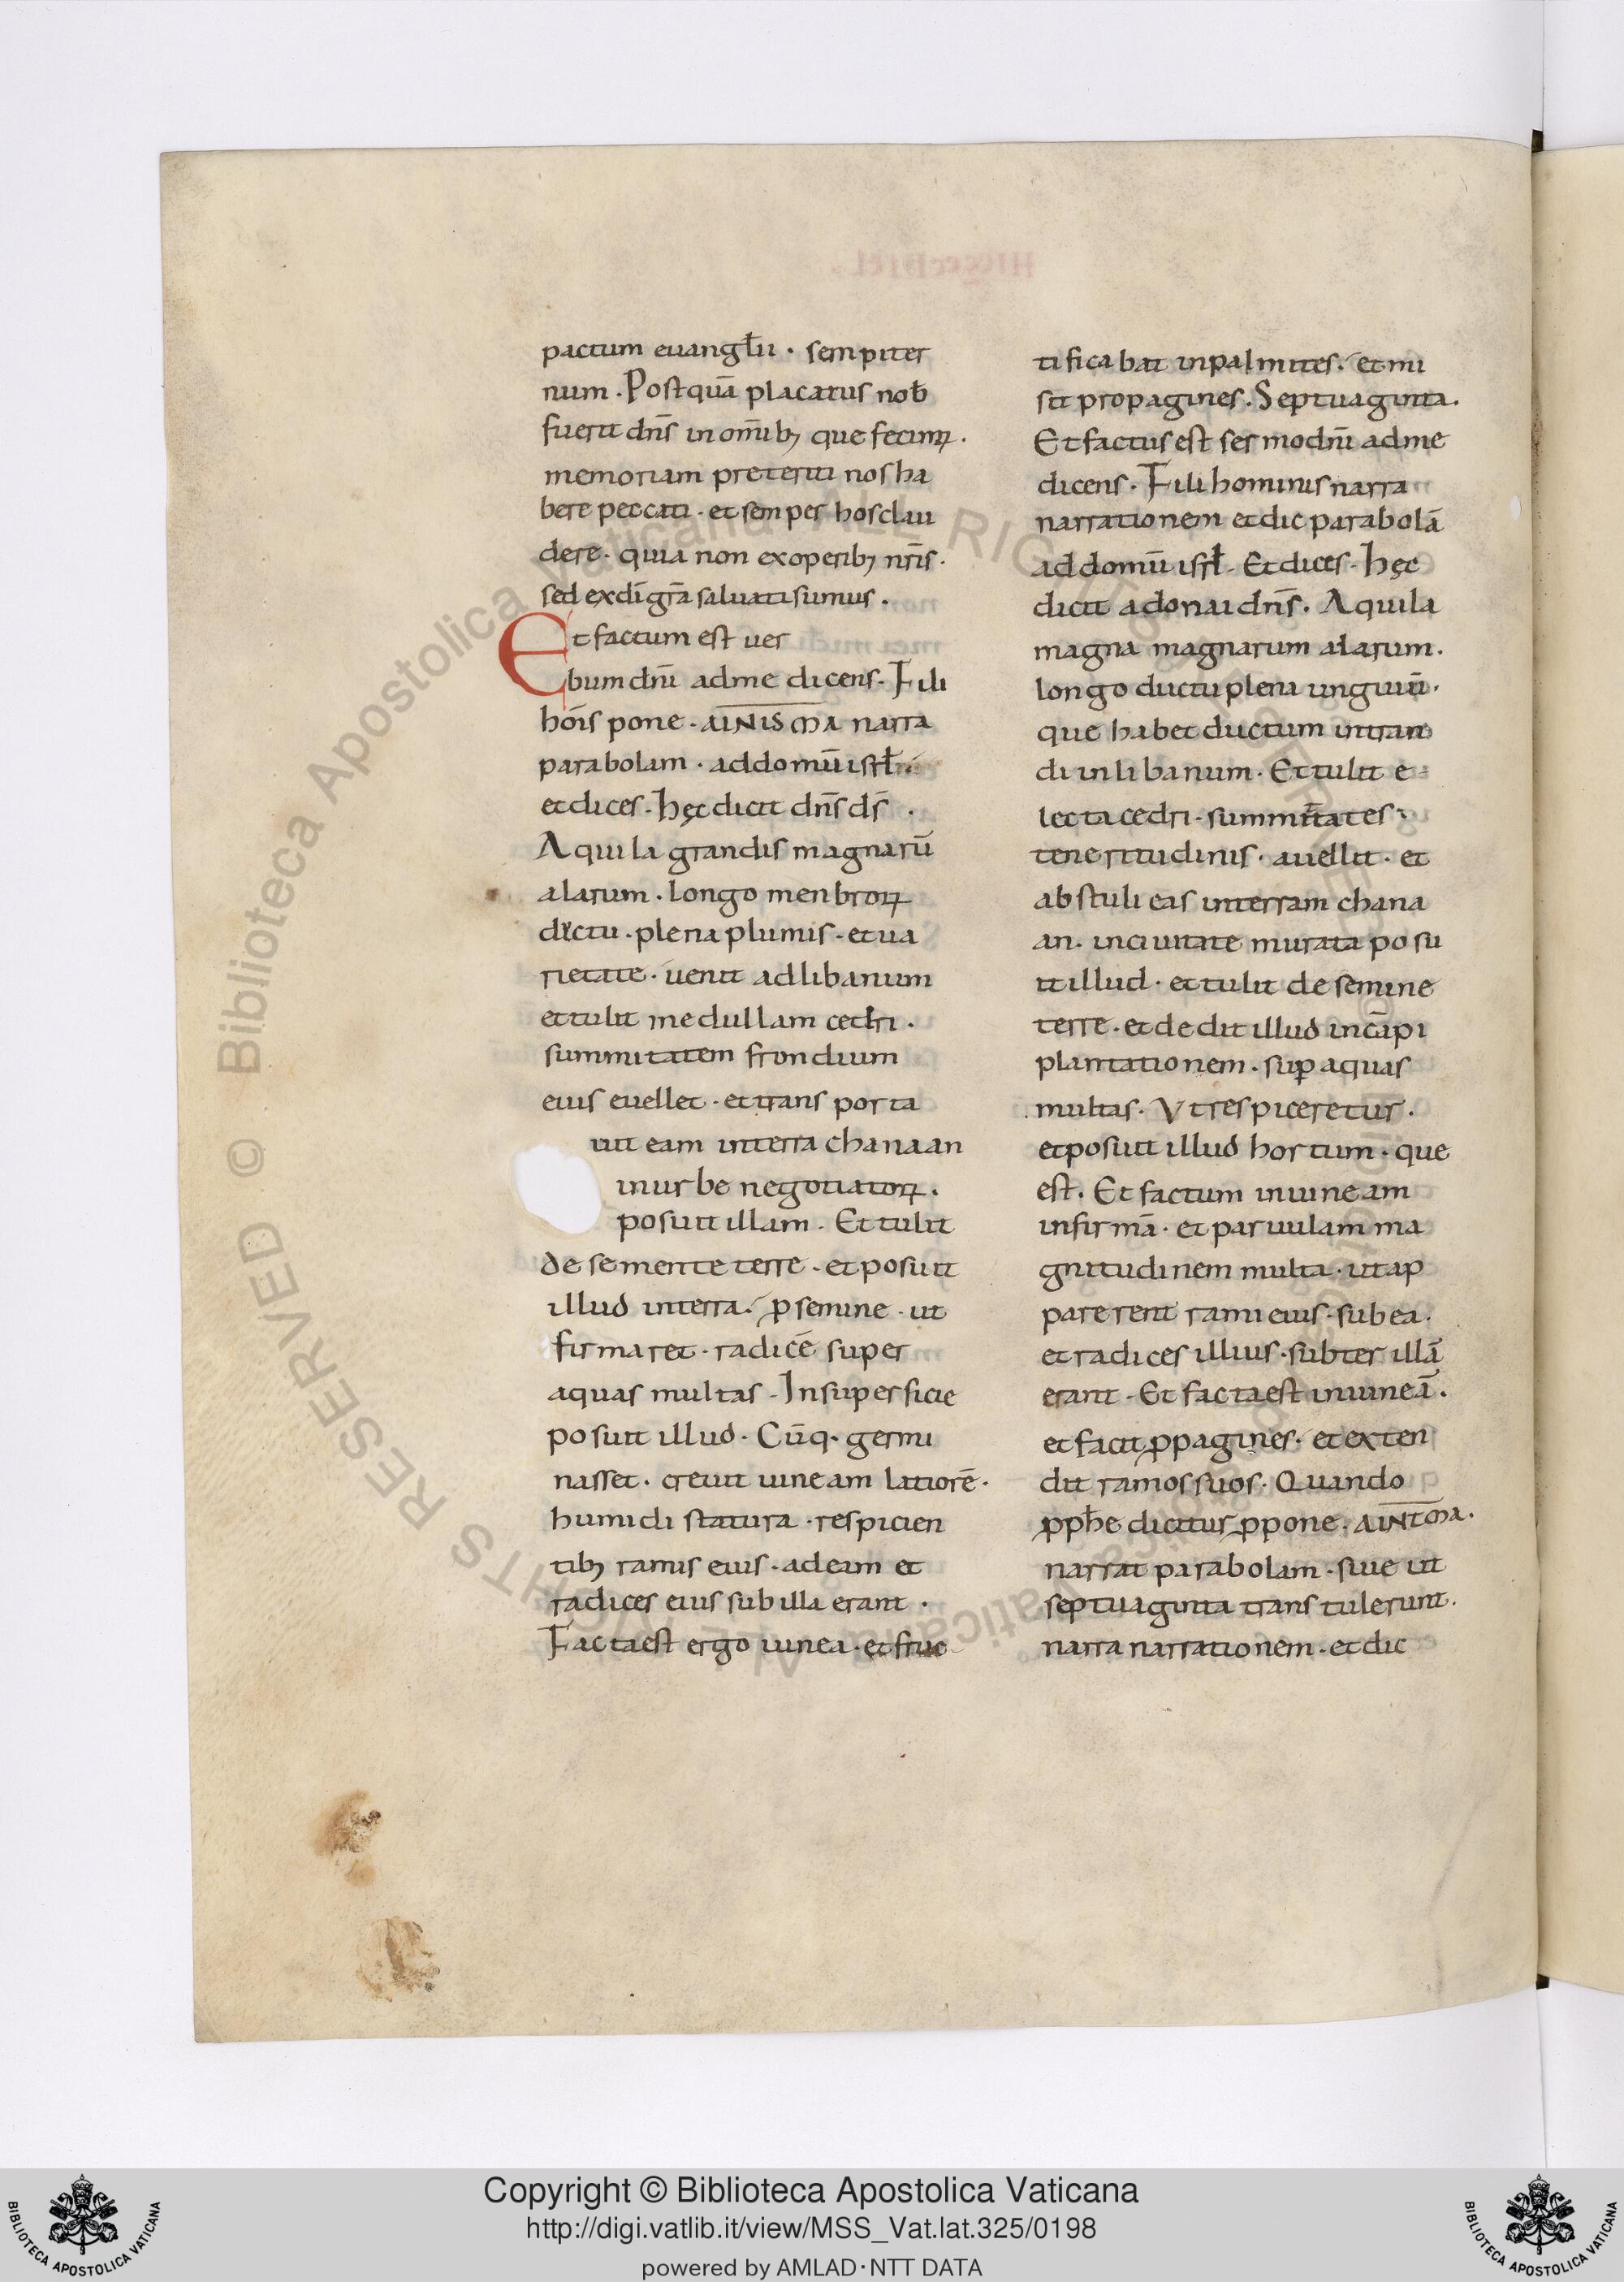 pactum euangłii · sempiter
num · Postquā placatus nob̄
fuerit dn̄s in om̄ibꝫ que fecimꝰ ·
memoriam preteriti nos ha
bere peccati · et semper hos clau
dere · quia non ex operibꝫ nr̄is ·
sed ex dī gr̄a saluati sumus ·
Et factum est uer
bum dn̄i ad me dicens · Fili
hōis pone · AINISMA narra
parabolam · ad domū isrł ·
et dices · Hęc dicit dn̄s ds̄ ·
Aquila grandis magnarū
alarum · longo menbroꝝ
ductu · plena plumis · et ua
rietate · uenit ad libanum
et tulit medullam cedri ·
summitatem frondium
eius euellet · et trans porta
uit eam in terra chanaan
in urbe negotiatoꝝ ·
posuit illam · Et tulit
de semente terre · et posuit
illud in terra · ꝓ semine · ut
firmaret · radicē super
aquas multas · In superficie
posuit illud · Cūq · germi
nasset · creuit uineam latiorē ·
humidi statura · respicien
tibꝫ ramis eius · ad eam et
radices eius sub illa erant ·
Facta est ergo uinea · et fruc
tificabat in palmites · et mi
sit propagines · Septuaginta ·
Et factus est sermo dn̄i ad me
dicens · Fili hominis narra
narrationem et dic parabolā
ad domū isrł · Et dices · Hęc
dicit adonai dn̄s · Aquila
magna magnarum alarum ·
longo ductu plena unguiū ·
que habet ductum intran
di in libanum · Et tulit e
lecta cedri · summitates
teneritudinis · auellit · et
abstuli eas in terram chana
an · in ciuitate murata posu
it illud · et tulit de semine
terre · et dedit illud in cāpi
plantationem · suꝑ aquas
multas · Vt respiceretur ·
et posuit illud hortum · que
est · Et factum in uineam
infirmā · et paruulam ma
gnitudinem multa · ut ap
parerent rami eius · sub ea ·
et radices illius · subter illā
erant · Et facta est in uineā ·
et facit ꝓpagines · et exten
dit ramos suos · Quando
ꝓph̄e dicitur ꝓpone · AINTMA ·
narrat parabolam · siue ut
septuaginta trans tulerunt ·
narra narrationem · et dic
Biblioteca Apostolica Vaticana ALL RIGHTS RESERVED ©
Copyright © Biblioteca Apostolica Vaticana
http://digi.vatlib.it/view/MSS_Vat.lat.325/0198
powered by AMLAD·NTT DATA
BIBLIOTECA APOSTOLICA VATICANA
BIBLIOTECA APOSTOLICA VATICANA